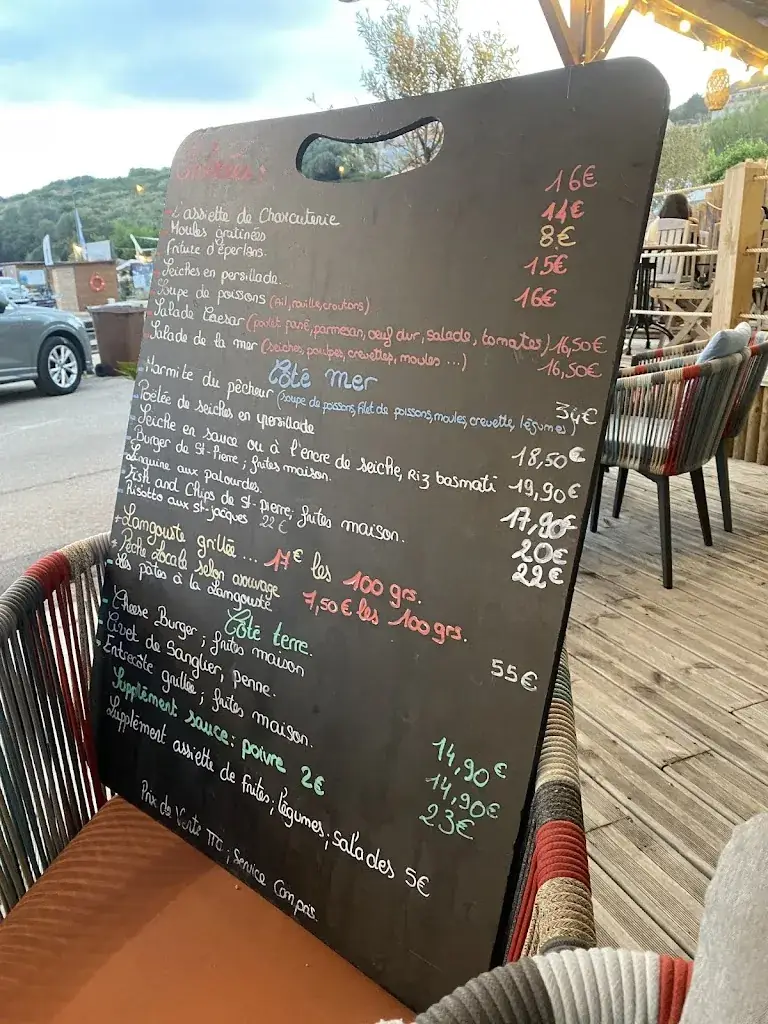 Entrées
- L'assiette de Charcuterie 16€
- Moules gratinées 14€
- Friture d'éperlans. 8€
- Seiches en persillade. 15€
- Soupe de poissons (Ail, rouille, croutons) 16€
- Salade Caesar (poulet pané, parmesan, oeuf dur, salade, tomates) 16,50€
- Salade de la mer (seiches, poulpes, crevettes, moules ...) 16,50€
Côté mer
- Marmite du pêcheur (soupe de poissons, filet de poissons, moules, crevette, légumes) 34€
- Poêlée de seiches en persillade 18,50€
- Seiche en sauce ou à l'encre de seiche, Riz basmati 19,90€
- Burger de St-Pierre; frites maison. 17,90€
- Linguine aux palourdes. 20€
- Fish and Chips de St-Pierre; frites maison. 22€
- Risotto aux st-jacques 22€
* Langouste grillée ... 17€ les 100 grs.
* Pêche Locale selon arrivage 7,50€ les 100 grs.
- Les pâtes à la Langouste 55€
Côté terre.
- Cheese Burger; frites maison 14,90€
- Civet de Sanglier, penne. 14,90€
- Entrecôte grillée; frites maison. 23€
Supplément sauce: poivre 2€
Supplément assiette de frites; légumes; salades 5€
Prix de Vente TTC; Service Compris.